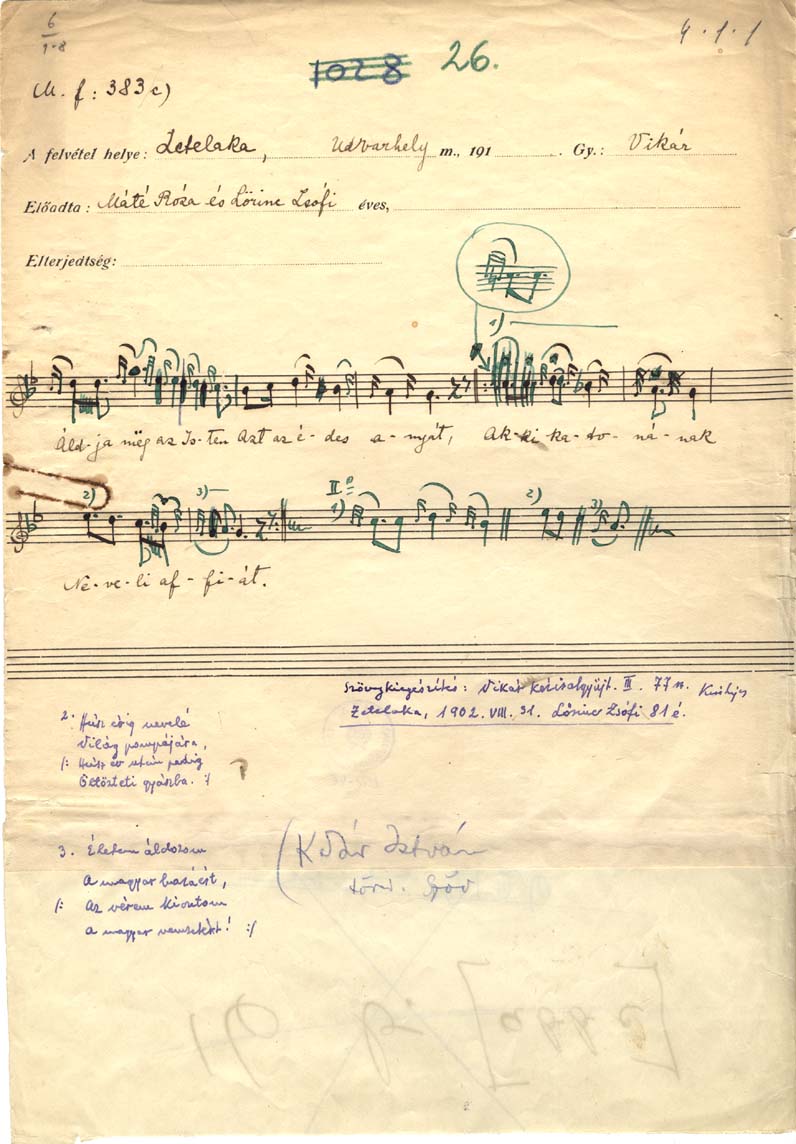 6
1-8
4.1.1
1028 26.
M. f: 383c)
A felvétel helye: Zetelaka, Udvarhely m., 191 . Gy.: Vikár
Előadta: Máté Róza és Lőrinc Zsófi éves,
Elterjedtség:
1)
Áld-ja még az Is-ten Azt az é-des a-nyát, Ak-ki ka-to-ná-nak
2) 3) II. 1) 2) 3)
Ne-ve-li af-fi-át.
Szövegkiegészítés: Vikár kéziratgyűjt. III. 77
Zetelaka, 1902. VIII. 31. Lőrinc Zsófi 81 é.
2. Húsz évig nevelé
Világ pompájára,
/: Húsz év után pedig
Öltözteti gyászba. :/
3. Életem áldozom
A magyar hazáért,
/: Az vérem kiontom
a magyar nemzetért! :/
István